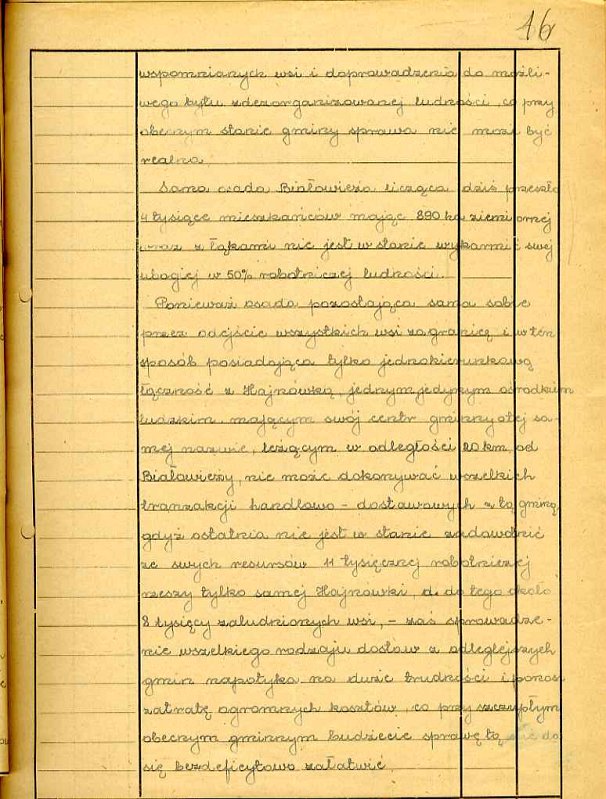 16
wspomnianych wsi i doprowadzenia do możli-
wego bytu zdezorganizowanej ludności, co przy
obecnym stanie gminy sprawa nie może być
realna.
Sama osada Białowieża licząca dziś przeszło
4 tysiące mieszkańców mając 890 ha ziemi ornej
wraz z łąkami nie jest w stanie wykarmić swej
ubogiej w 50% robotniczej ludności.
Ponieważ osada pozostająca sama sobie
przez odejście wszystkich wsi za granicę i w ten
sposób posiadająca tylko jednokierunkową
łączność z Hajnówką, jednym jedynym ośrodkiem
ludzkim, mającym swój centr gminny o tej sa-
mej nazwie, leżącym w odległości 20 km. od
Białowieży, nie może dokonywać wszelkich
tranzakcji handlowo - dostawowych z tą gminą,
gdyż ostatnia nie jest w stanie zadowolnić
ze swych resursów 11 tysięcznej robotniczej
rzeszy tylko samej Hajnówki, do tego około
8 tysięcy zaludnionych wsi, - zaś sprowadze-
nie wszelkiego rodzaju dostaw z odleglejszych
gmin napotyka na duże trudności i ponosi
zatratę ogromnych kosztów, co przy szczupłym
obecnym gminnym budżecie sprawę tą nie da
się bezdeficytowo załatwić.